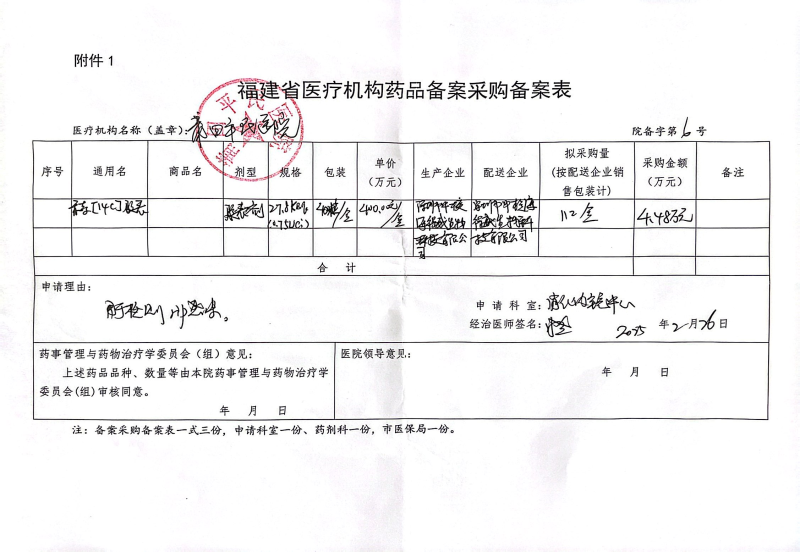 附件 1
福建省医疗机构药品备案采购备案表
医疗机构名称（盖章）：
院备字第 6 号
序号 通用名 商品名 剂型 规格 包装 单价（万元） 生产企业 配送企业 拟采购量（按配送企业销售包装计） 采购金额（万元） 备注
尿素[14C]胶囊 胶囊剂 400.00元/盒 112盒 4.48万元
合 计
申请理由：
用于检测HP感染。
申 请 科 室：
经治医师签名： 2025 年 2 月 26 日
药事管理与药物治疗学委员会（组）意见：
上述药品品种、数量等由本院药事管理与药物治疗学
委员会(组)审核同意。
年 月 日
医院领导意见：
年 月 日
注：备案采购备案表一式三份，申请科室一份、药剂科一份，市医保局一份。